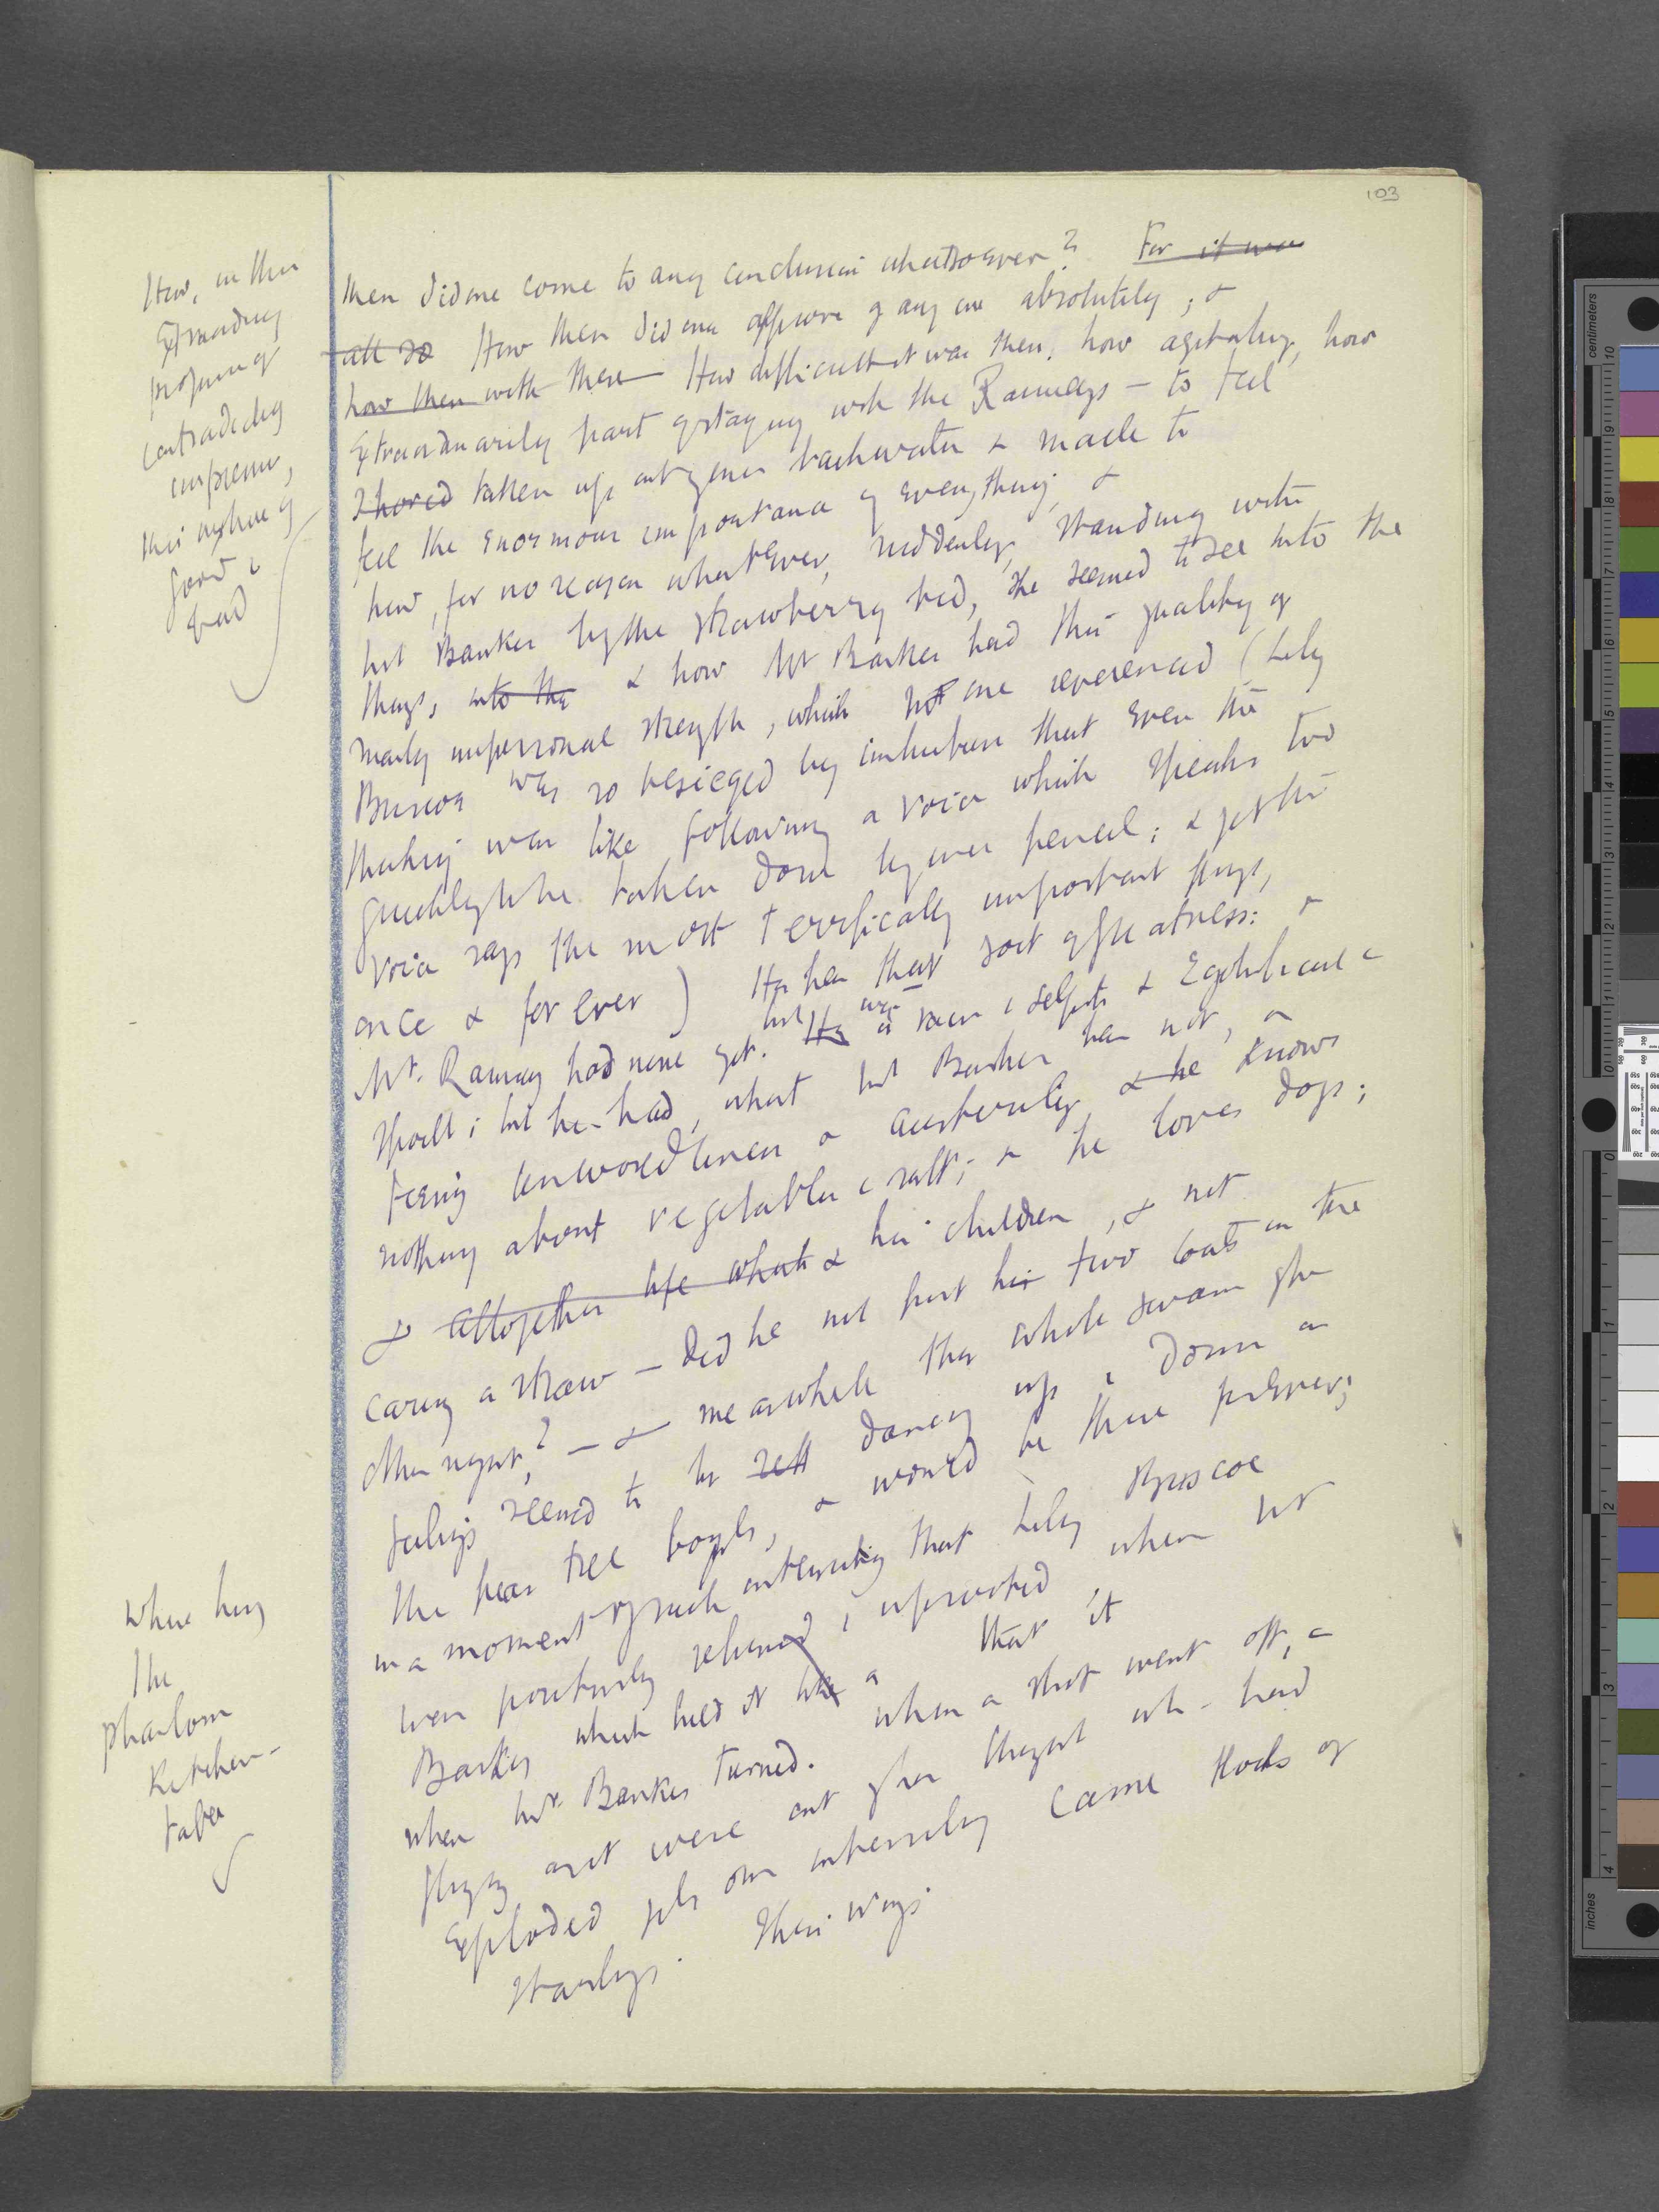 103
How, in this
extraordinary
profusion of
contradictory
impressions,
this mixture of
good &
bad
then did one come to any conclusion whatsoever? For it was
all so How then did one approve of any one absolutely; &
how then with these How difficult it was then, how agitating, how
extraordinarily part of staying with the Ramsays - to feel
taken up out of one's backwater & made to
feel the enormous importance of everything, &
how, for no reason whatever, suddenly, standing with
Mr Bankes by the strawberry bed, she seemed to see into the
things, into the & how Mr Bankes had this quality of
manly impersonal strength, which one reverenced (Lily
Briscoe was so besieged by that even this
thinking was like following a voice which speaks too
quickly to be taken down by one's pencil; & yet the
voice says the most terrifically important things,
once & for ever) He has that sort of greatness: &
Mr. Ramsay had none of it. but He is was vain & selfish & egotistical &
spoilt; but he had, what Mr Bankes has not, a
fiery unworldliness & austerity, & he knows
nothing about vegetables & salt; & he loves dogs;
& altogether life & his children, & not
caring a straw - Did he not put his two coats on the
other night? - & meanwhile this whole swarm of her
feelings seemed to be dancing up & down in
the pear tree boughs, & would be there forever;
in a moment of such intensity that Lily Briscoe
was positively relieved & uprooted when Mr
Bankes which held it like a that it
when Mr. Bankes turned. when a shot went off, &
flying out were out of her thought wh. had
exploded of its own intensity came flocks of
starlings. Their wings.
Where hung
the
phantom
kitchen-
table
centimetres
inches